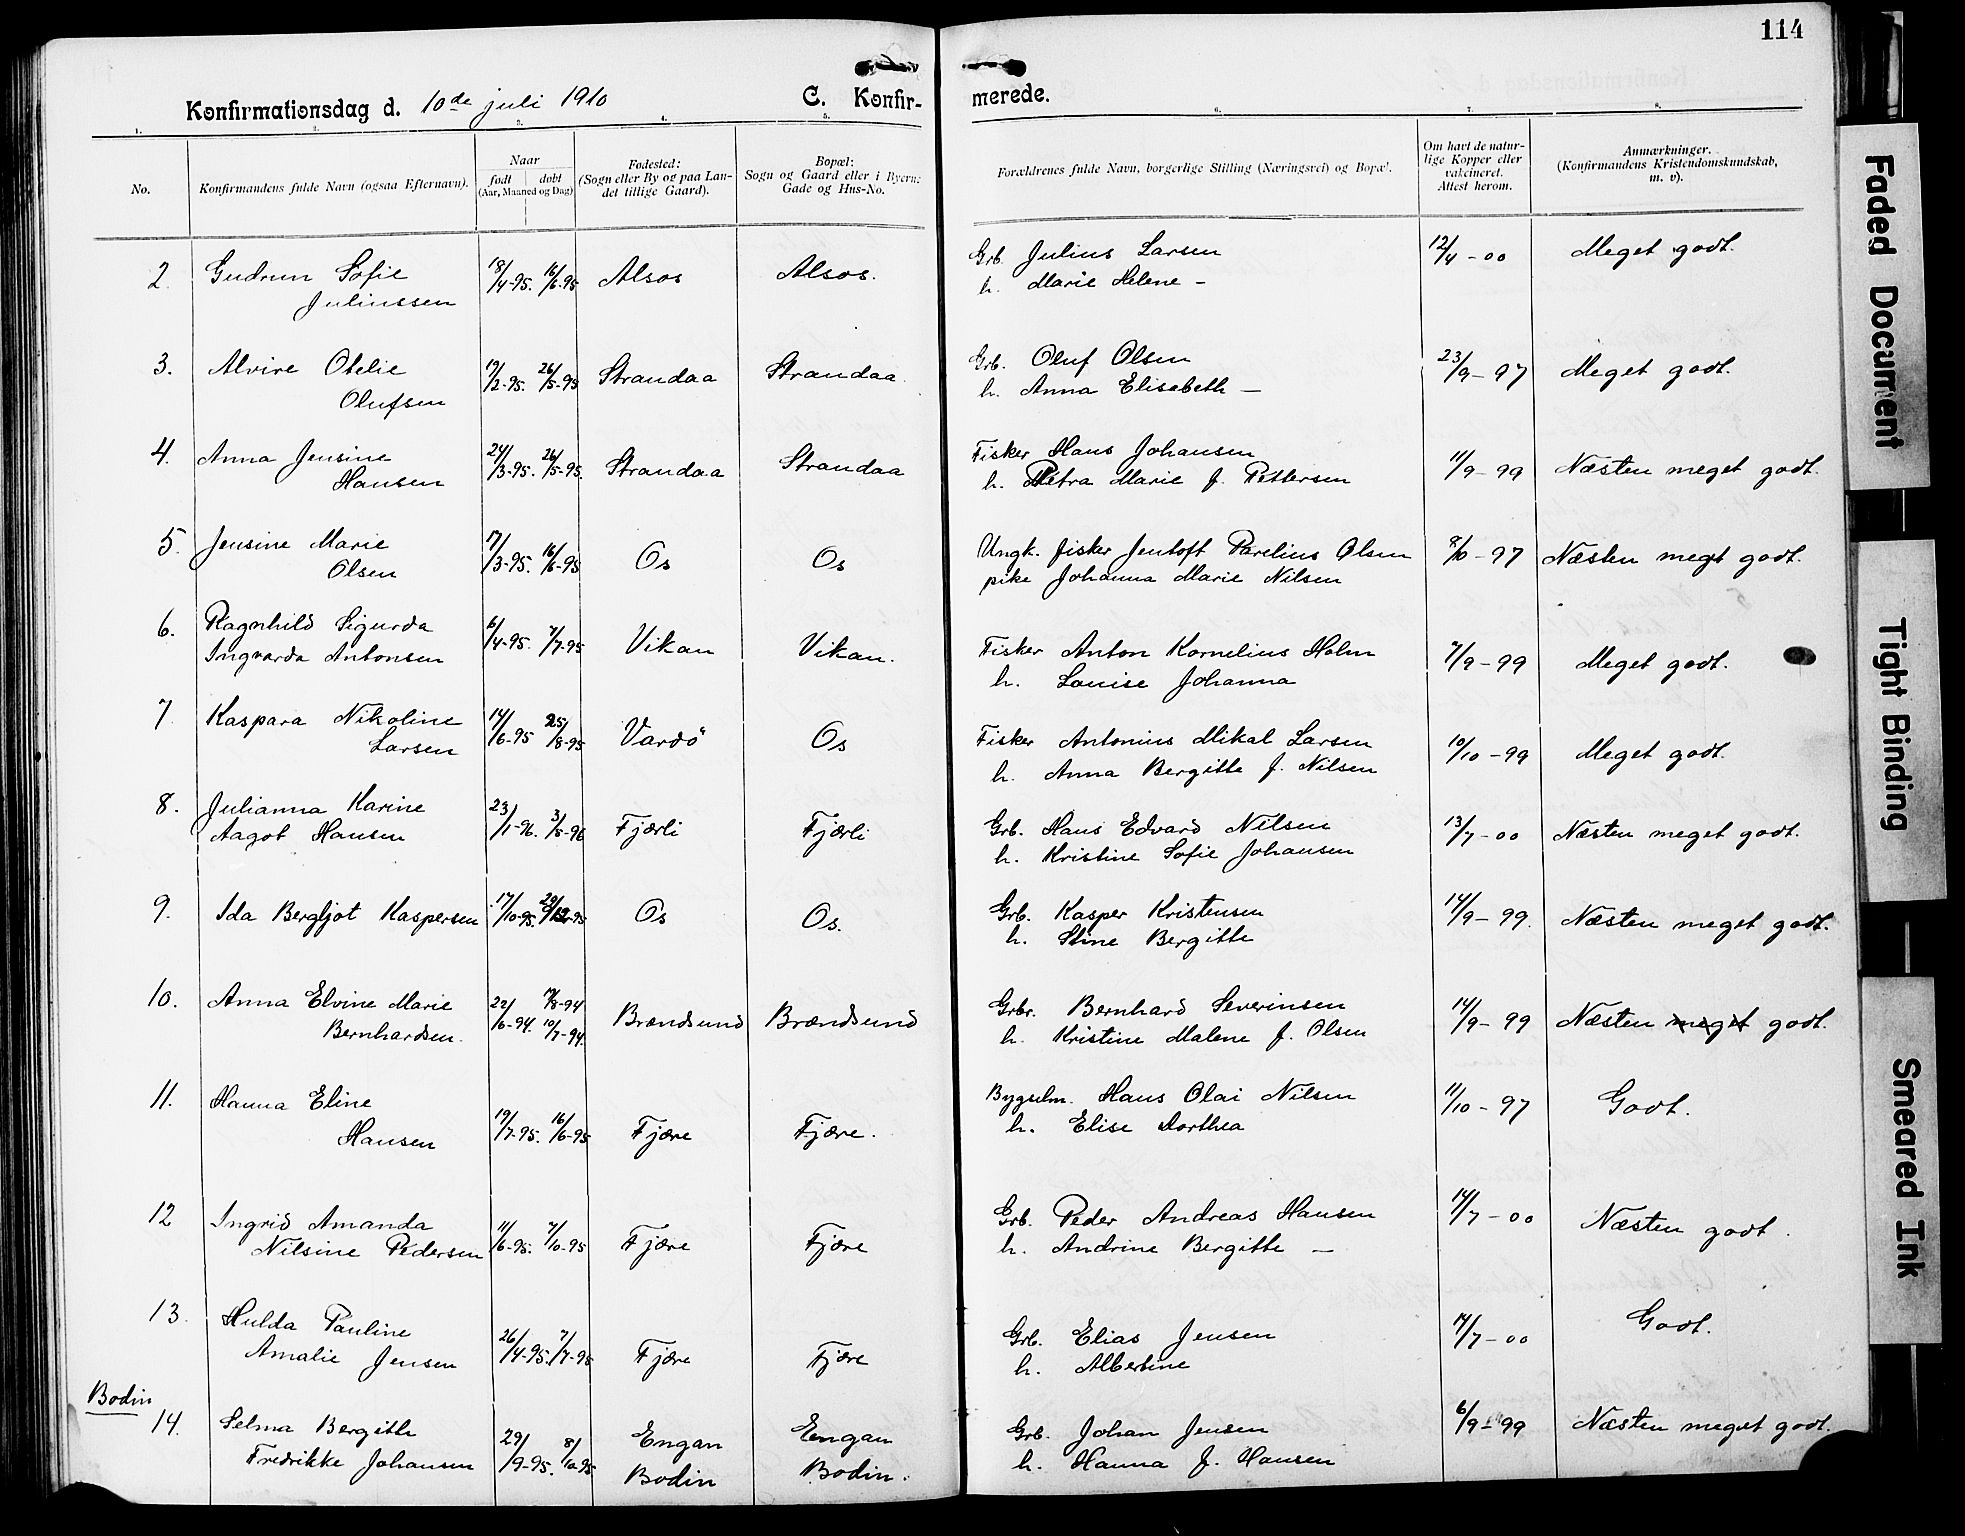 114
Konfirmationsdag d. 10de juli 1910
C. Konfir-
merede.
1.
2.
3.
4.
5.
6.
7.
8.
No.
Konfirmandens fulde Navn (ogsaa Efternavn).
Naar
født døbt
(Aar, Maaned og Dag)
Fødested:
(Sogn eller By og paa Lan-
det tillige Gaard).
Bopæl:
Sogn og Gaard eller i Byern:
Gade og Hus-No.
Forældrenes fulde Navn, borgerlige Stilling (Næringsvei) og Bopæl.
Om havt de natur-
lige Kopper eller
vakcineret.
Attest herom.
Anmærkninger.
(Konfirmandens Kristendomskundskab,
m. v).
2. Gudrun Sofie
Juliussen
18/4-95. 16/6-95 Alsos Alsos.
Grb. Julius Larsen
h. Marie Helene –
12/4-00 Meget godt.
3. Alvire Otelie
Olufsen
19/2-95. 26/5-95 Strandaa Strandaa
Grb. Oluf Olsen
h. Anna Elisabeth –
23/9-97 Meget godt.
4. Anna Jensine
Hansen
24/3-95. 26/5-95. Strandaa Strandaa
Fisker Hans Johansen
h. Petra Marie f. Pettersen
11/9-99 Næsten meget godt.
5. Jensine Marie
Olsen
17/3-95. 16/6-95 Os Os
Ungk. fisker Jentoft Parelius Olsen
pike Johanna Marie Nilsen
8/10-97 Næsten meget godt.
6. Ragnhild Sigurda
Ingvarda Antonsen
6/4-95. 7/7-95 Vikan Vikan.
Fisker Anton Kornelius Holm
h. Louise Johanna
7/9-99 Meget godt.
7. Kaspara Nikoline
Larsen
14/6-95 25/8-95 Vardö Os
Fisker Antonius Mikal Larsen
h. Anna Bergitte f. Nilsen
10/10-99 Meget godt.
8. Julianna Karine
Aagot Hansen
23/1-96. 3/5-96 Fjærli Fjærli
Grb. Hans Edvard Nilsen
h. Kristine Sofie Johansen
13/7-00 Næsten meget godt.
9. Ida Bergljot Kaspersen
17/10-95. 29/12-95 Os Os.
Grb. Kasper Kristensen
h. Stine Bergitte
14/9-99. Næsten meget godt.
10. Anna Elvine Marie
Bernhardsen.
22/6-94. 17/8-94
10/7-94. Brændsund Brændsund
Grbr. Bernhard Severinsen
h. Kristine Malene f. Olsen
14/9-99 Næsten meget godt.
11. Hanna Eline
Hansen
19/7-95. 16/6-95 Fjære Fjære.
Bygselm. Hans Olai Nilsen
h. Elise Dorthea
11/10-97 Godt.
12 Ingrid Amanda
Nilsine Pedersen
11/6-95. 7/10-95 Fjære Fjære
Grb. Peder Andreas Hansen
h. Andrine Bergitte –
14/7-00 Næsten godt.
13. Hulda Pauline
Amalie Jensen
26/4-95. 7/7-95 Fjære Fjære
Grb. Elias Jensen
h. Albertine
14/7-00 Godt.
Bodin
14. Selma Bergitte
Fredrikke Johansen
29/9-95. 8/10-95 Engan
Bodin
Engan
Bodin.
Grb. Johan Jensen
h. Hanna f. Hansen
6/9-99 Næsten meget godt.
Faded Document
Tight Binding
Smeared Ink